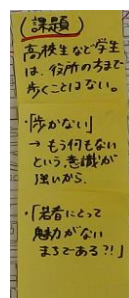 (課題)
高校生など学生
は、役所の方まで
歩くことはない。
・「歩かない」
→ もう何もない
という意識が
強いから。
・「若者にとって
魅力がない
まちである?!」